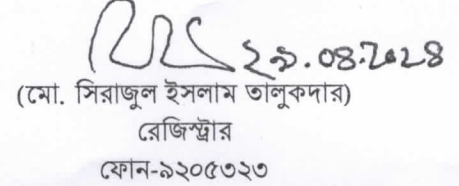 ২৯.০৪.২০২৪
(মো. সিরাজুল ইসলাম তালুকদার)
রেজিস্ট্রার
ফোন-৯২০৫৩২৩